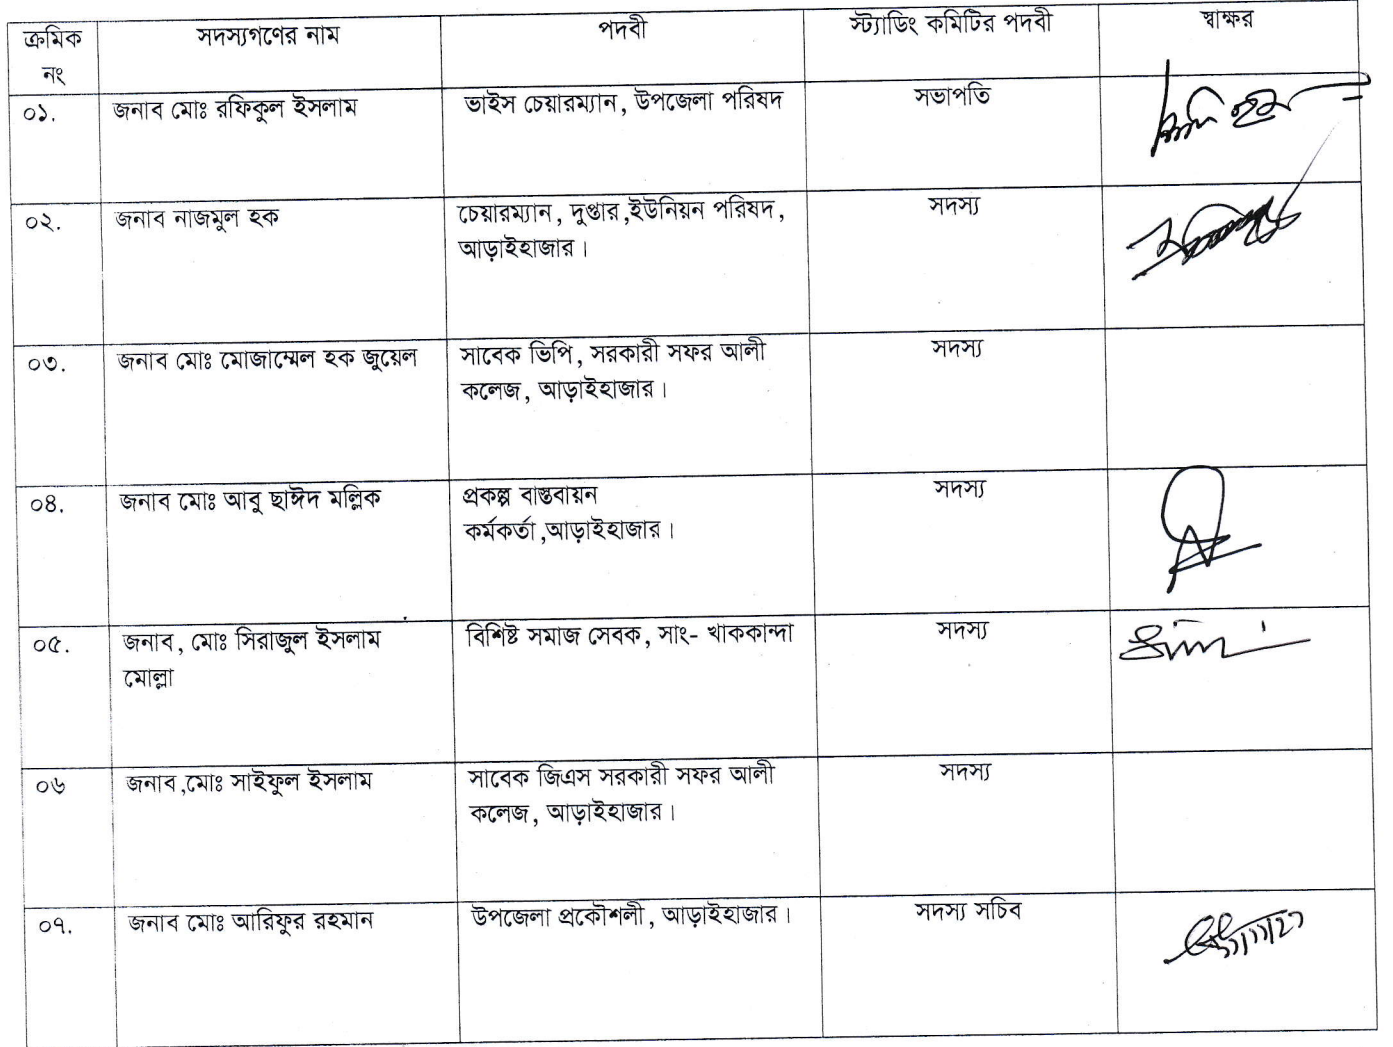 ক্রমিক নং	সদস্যগণের নাম	পদবী	স্ট্যাডিং কমিটির পদবী	স্বাক্ষর
০১.	জনাব মোঃ রফিকুল ইসলাম	ভাইস চেয়ারম্যান, উপজেলা পরিষদ	সভাপতি
০২.	জনাব নাজমুল হক	চেয়ারম্যান, দুপ্তার,ইউনিয়ন পরিষদ,	সদস্য
আড়াইহাজার।
০৩.	জনাব মোঃ মোজাম্মেল হক জুয়েল	সাবেক ভিপি, সরকারী সফর আলী	সদস্য
কলেজ, আড়াইহাজার।
০৪.	জনাব মোঃ আবু ছাঈদ মল্লিক	প্রকল্প বাস্তবায়ন	সদস্য
কর্মকর্তা,আড়াইহাজার।
০৫.	জনাব, মোঃ সিরাজুল ইসলাম	বিশিষ্ট সমাজ সেবক, সাং- খাককান্দা	সদস্য
মোল্লা
০৬	জনাব,মোঃ সাইফুল ইসলাম	সাবেক জিএস সরকারী সফর আলী	সদস্য
কলেজ, আড়াইহাজার।
০৭.	জনাব মোঃ আরিফুর রহমান	উপজেলা প্রকৌশলী, আড়াইহাজার।	সদস্য সচিব